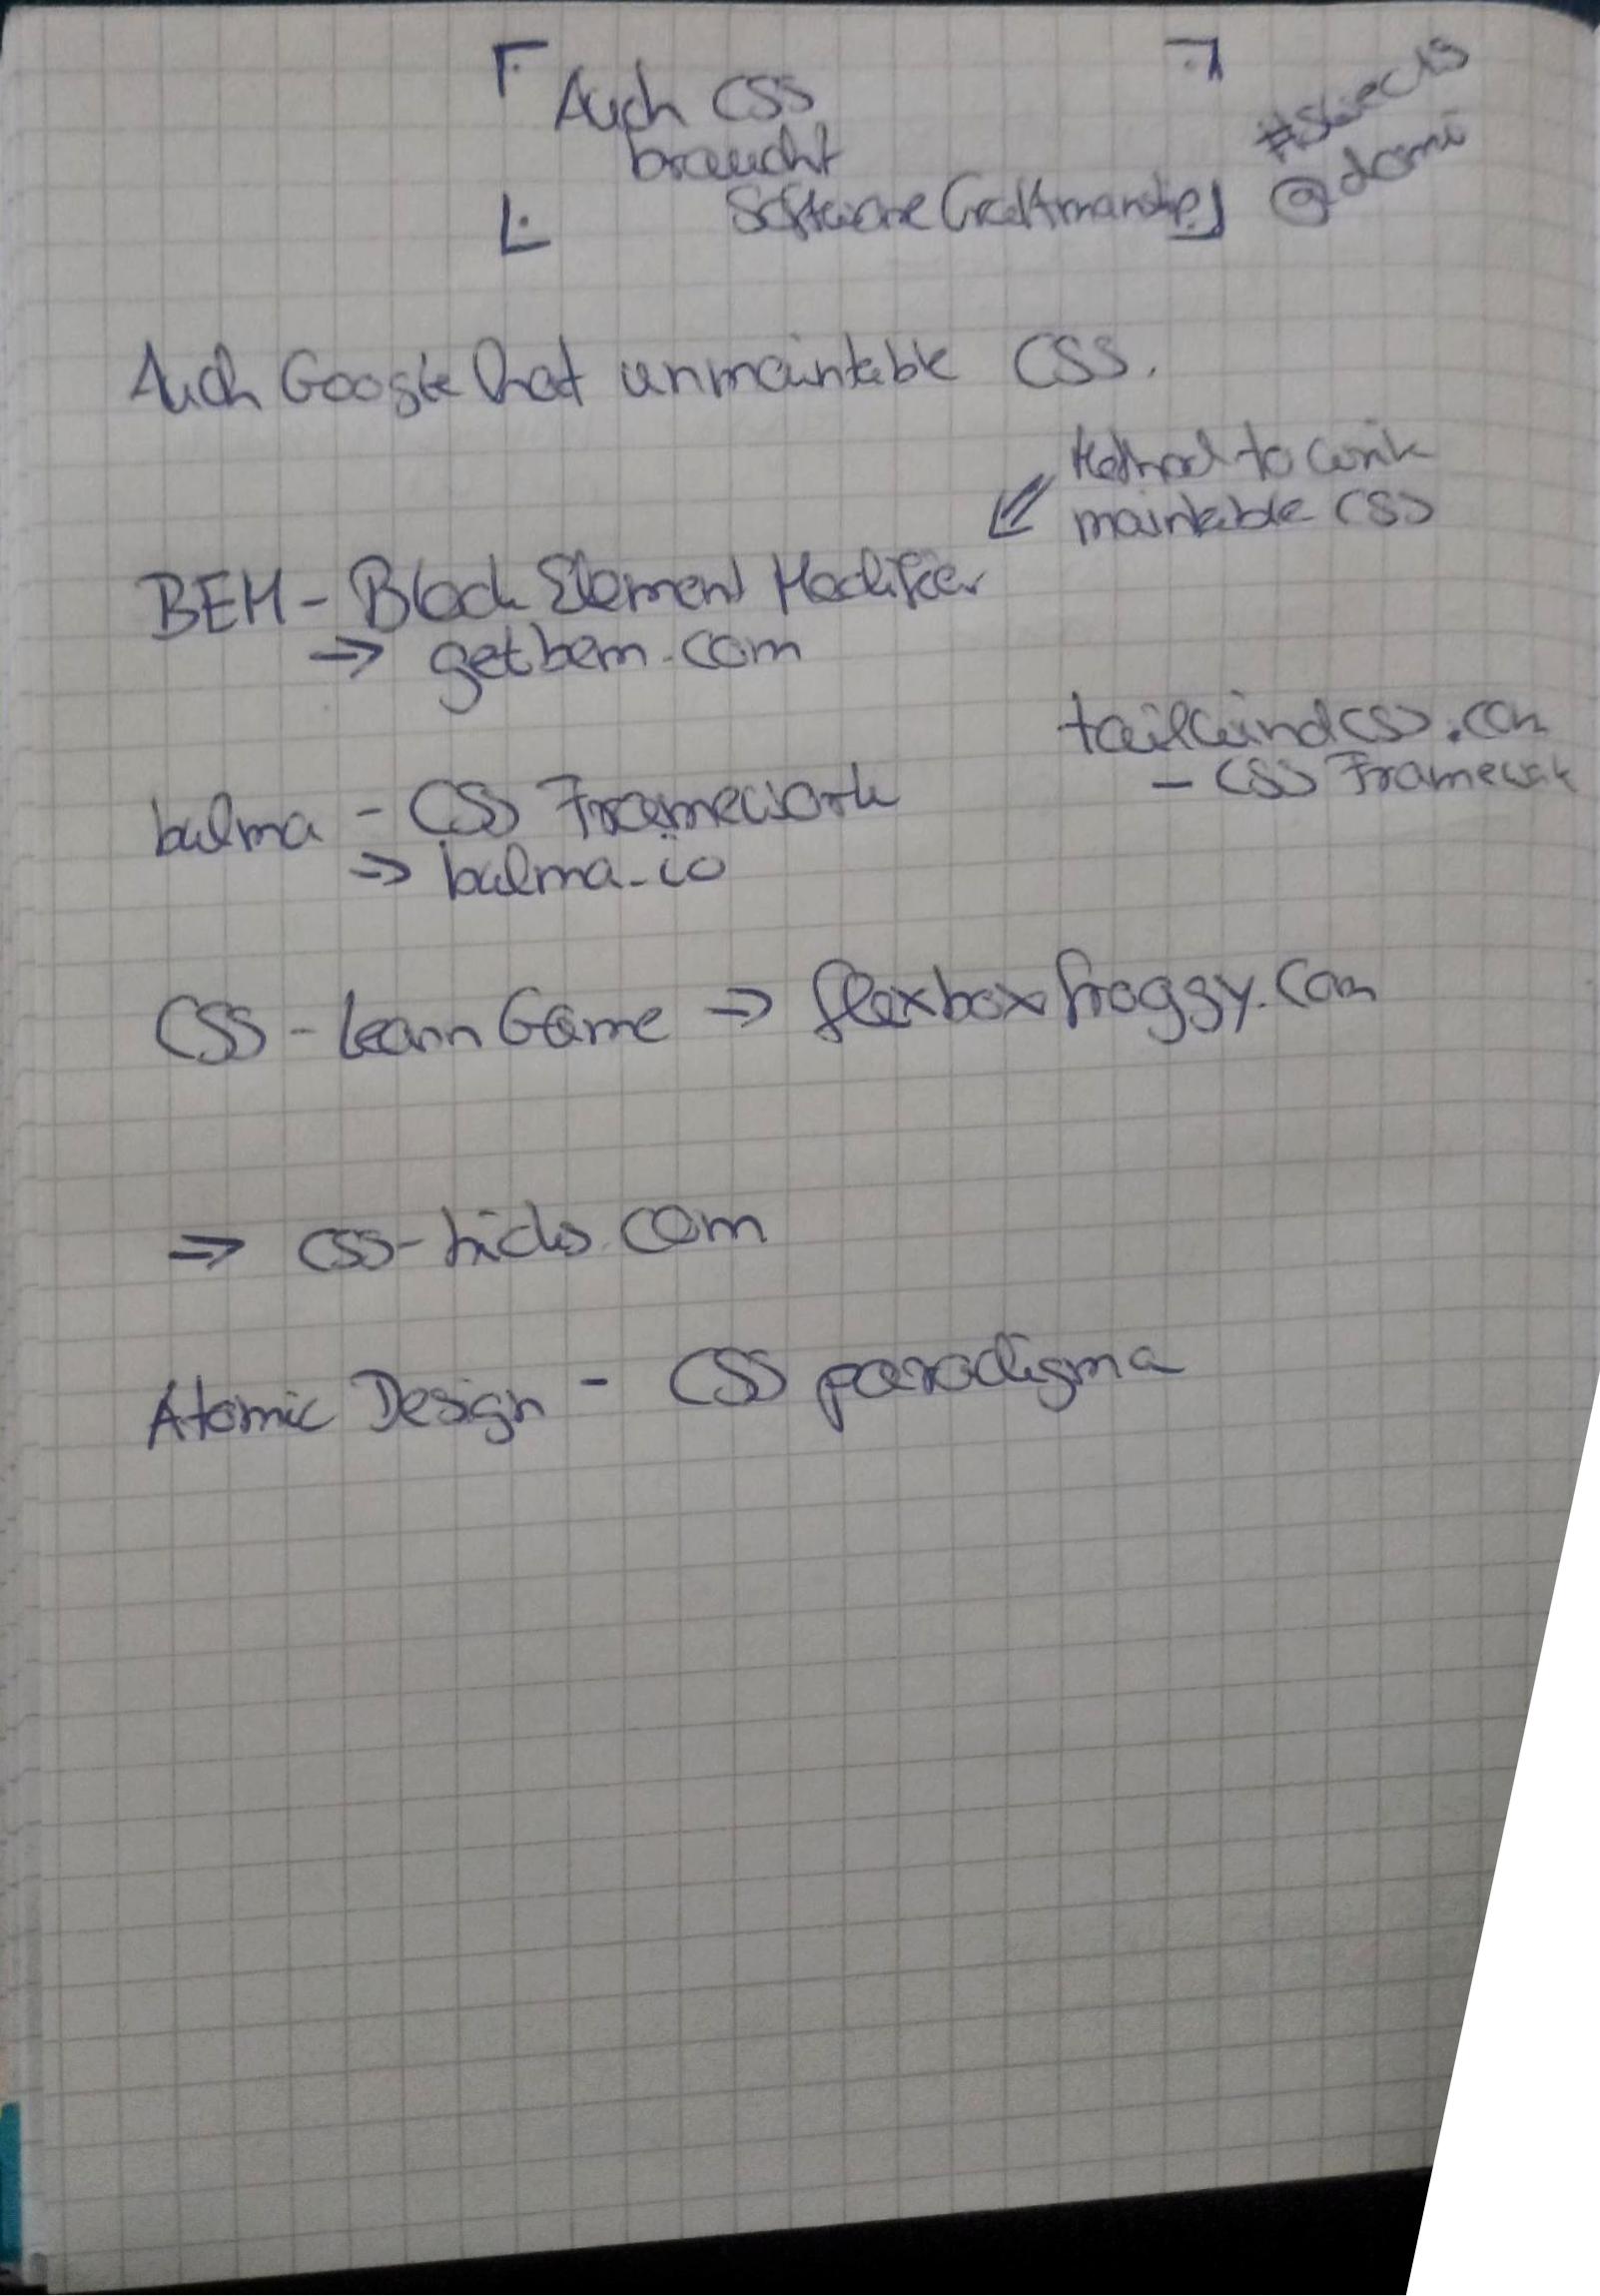 Auch CSS
braucht
Software Craftmanship
#slieects
@domi
Auch Google hat unmaintable CSS.
Method to write
maintable CSS
BEM - Block Element Modifier
⇒ getbem.com
tailwindcss.com
- CSS Framework
bulma - CSS Framework
⇒ bulma.io
CSS - Learn Game ⇒ flexboxfroggy.com
⇒ css-tricks.com
Atomic Design - CSS paradigma